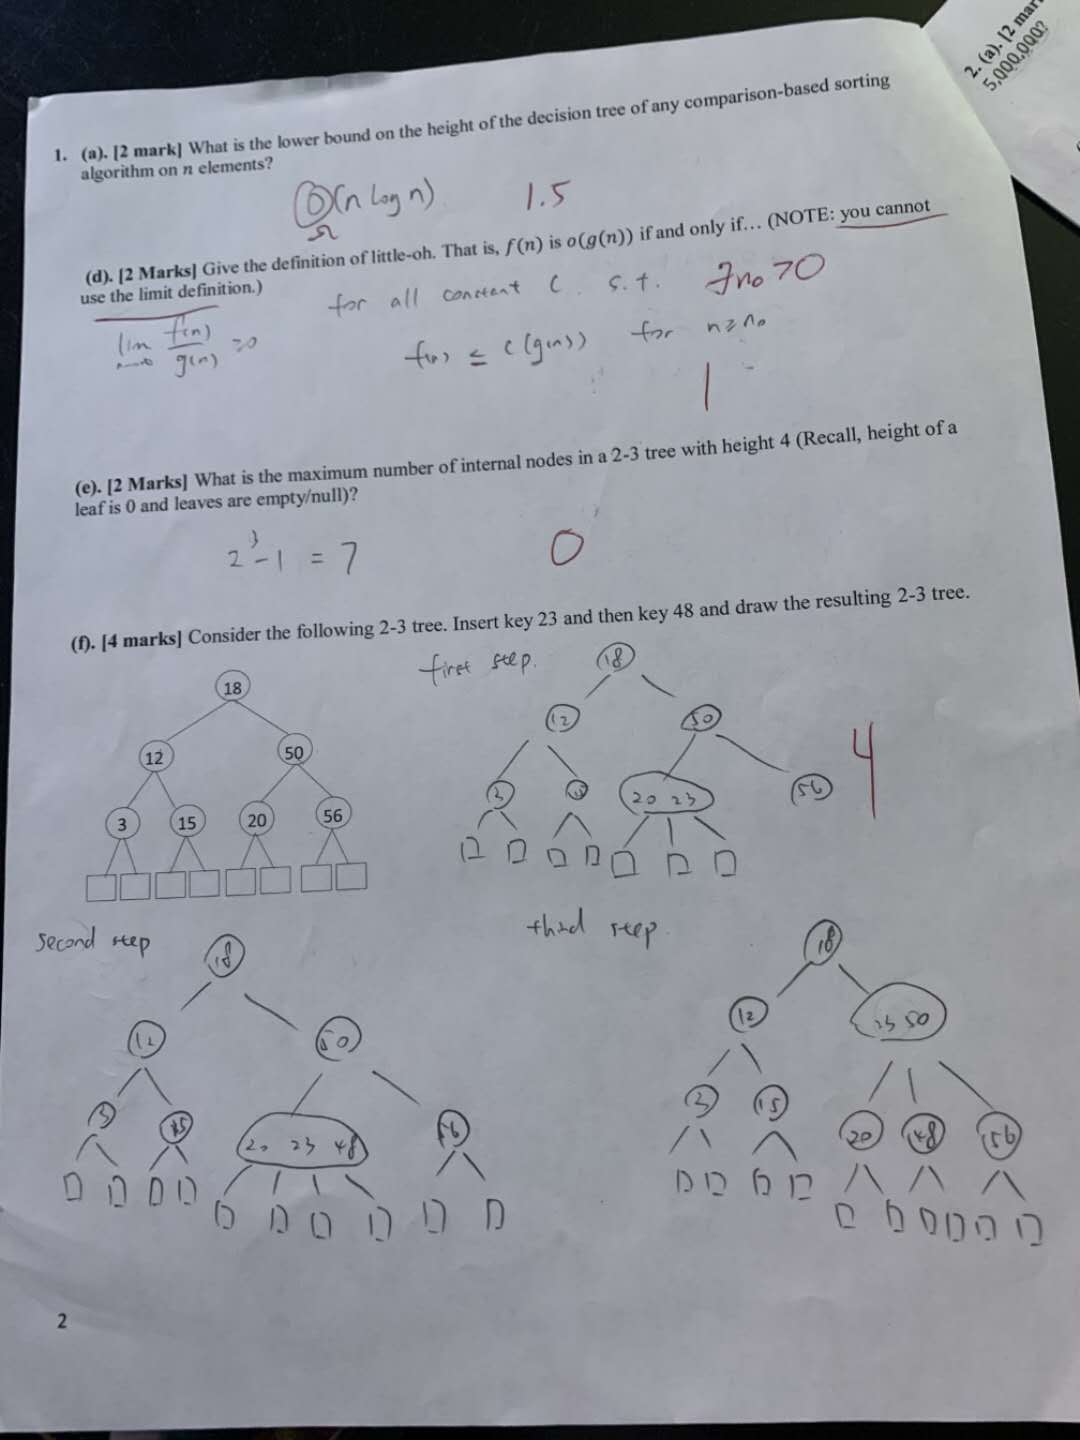 2. (a). [2 mar
5,000,000?
1. (a). [2 mark] What is the lower bound on the height of the decision tree of any comparison-based sorting
algorithm on n elements?
O(n log n) 1.5
Ω
(d). [2 Marks] Give the definition of little-oh. That is, f(n) is o(g(n)) if and only if… (NOTE: you cannot
use the limit definition.)
for all constant C. s.t. ∃n₀>0
lim f(n)/g(n) = 0
f(n) ≤ c(g(n)) for n≥n₀
1
(e). [2 Marks] What is the maximum number of internal nodes in a 2-3 tree with height 4 (Recall, height of a
leaf is 0 and leaves are empty/null)?
2³-1 = 7 0
(f). [4 marks] Consider the following 2-3 tree. Insert key 23 and then key 48 and draw the resulting 2-3 tree.
18
12 50
3 15 20 56
first step.
18
12 50
3 15 20 23 56
4
second step
18
12 50
3 15 20 23 48 56
third step.
18
12 23 50
3 15 20 48 56
2